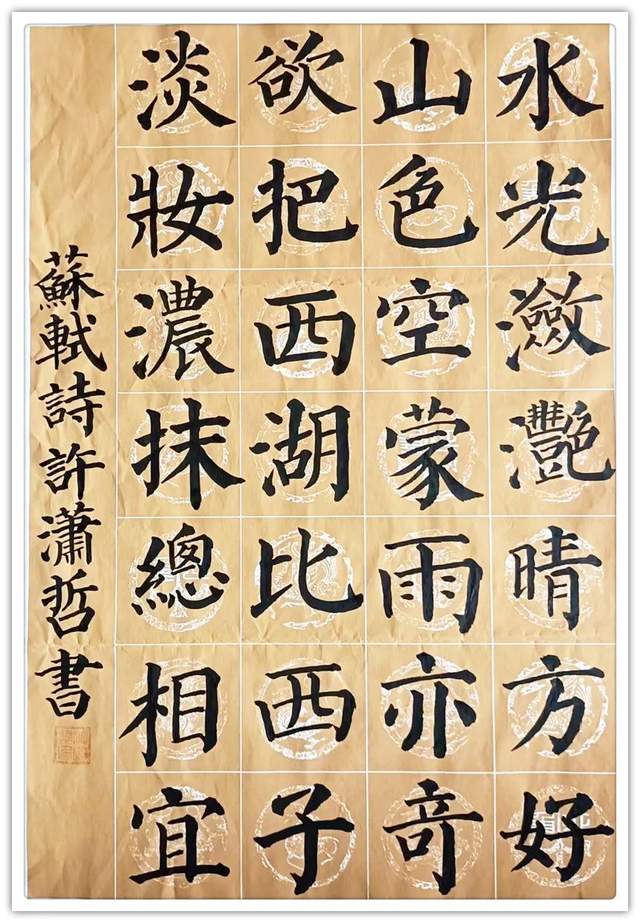 水光瀲灩晴方好
山色空蒙雨亦奇
欲把西湖比西子
淡妝濃抹總相宜
蘇軾詩許瀟哲書